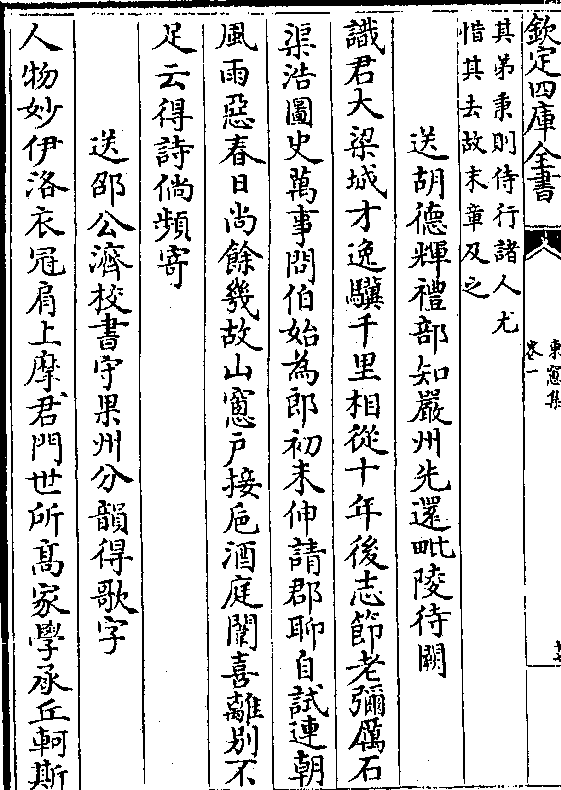 欽定四庫全書
東窓集
卷一
其弟秉則侍行諸人尤
惜其去故末章及之
送胡德輝禮部知嚴州先還毗陵待闕
識君大梁城才逸驥千里相從十年後志節老彌厲石
渠浩圖史萬事問伯始為郎初未伸請郡聊自試連朝
風雨惡春日尚餘幾故山窻戶接巵酒庭闈喜離別不
足云得詩倘頻寄
送邵公濟校書守果州分韻得歌字
人物妙伊洛衣冠肩上摩君門世所髙家學承丘軻斯